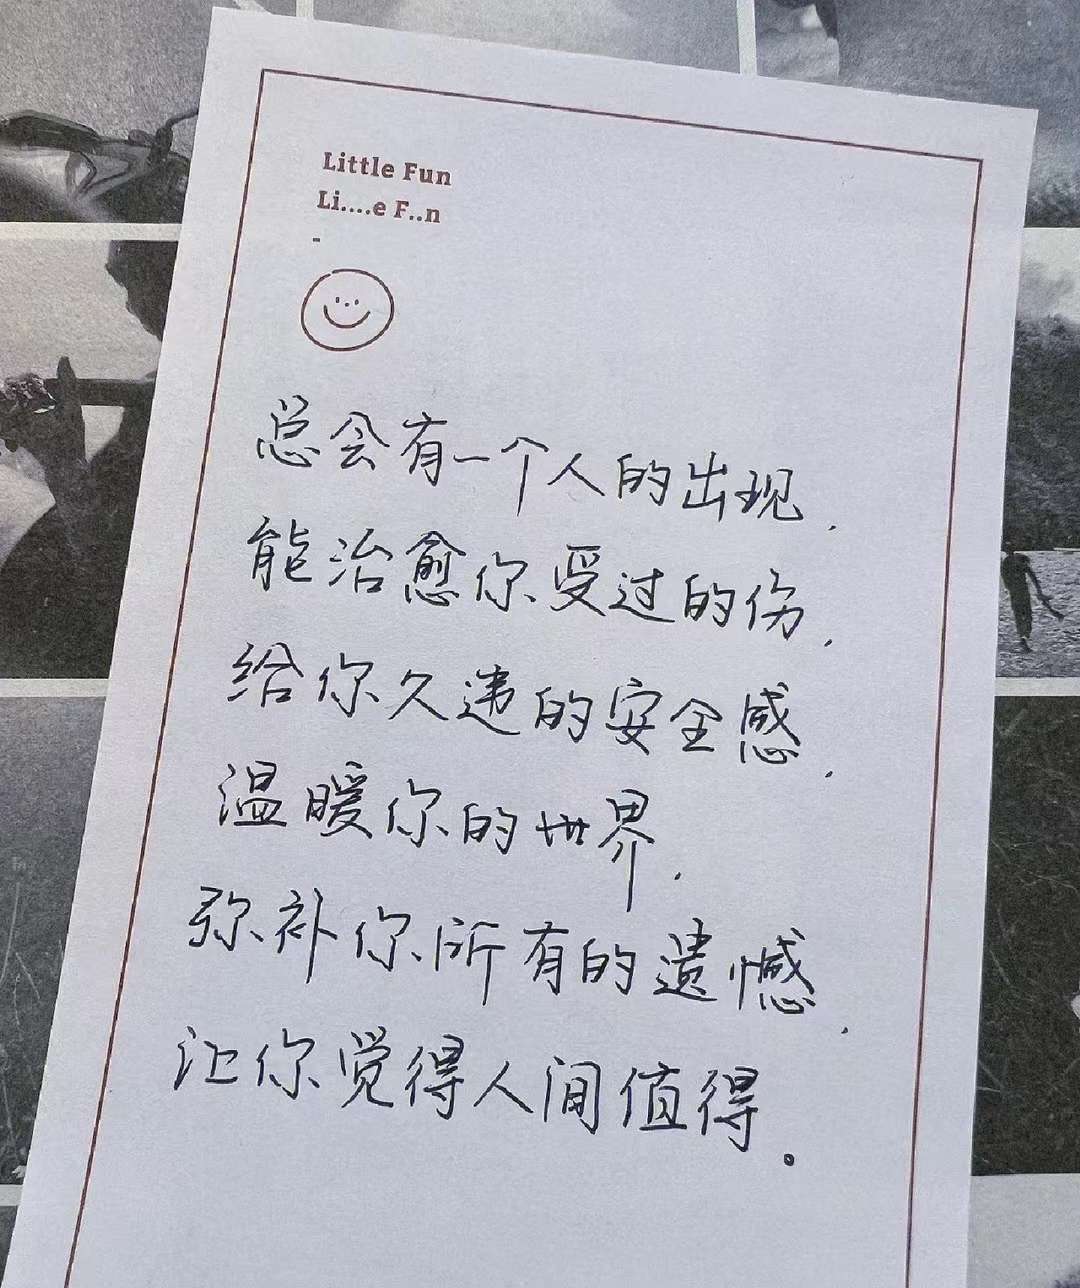 Little Fun
Li....e F..n
-
总会有一个人的出现,
能治愈你受过的伤,
给你久违的安全感,
温暖你的世界,
弥补你所有的遗憾,
让你觉得人间值得。